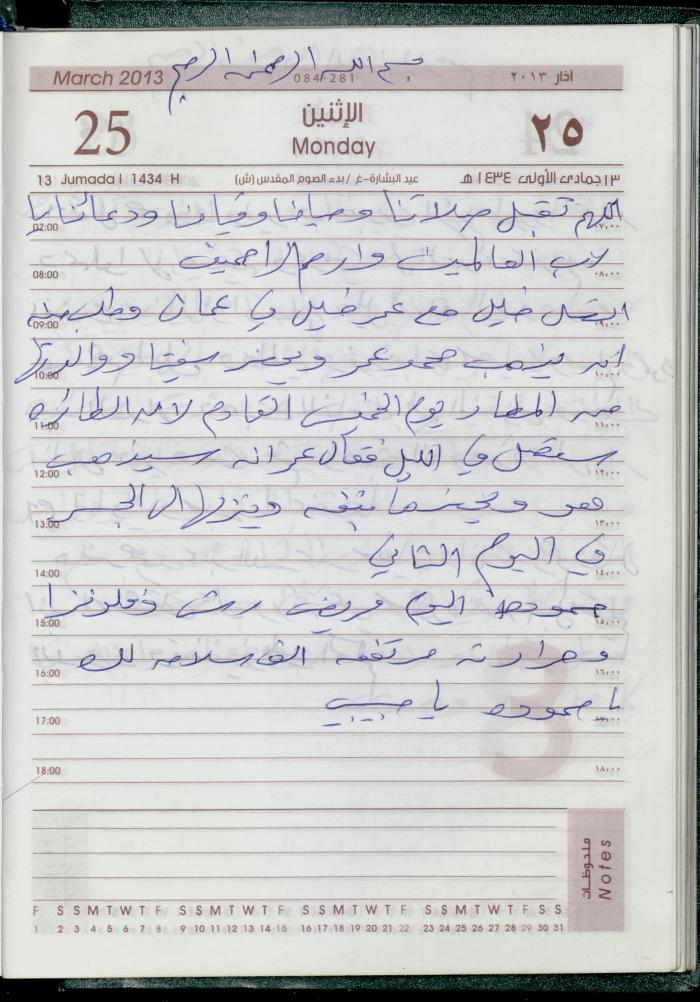 بسم الله الرحمن الرحيم
March 2013
084-281
آذار ٢٠١٣
25
الإثنين
Monday
٢٥
13 Jumada I 1434 H
عيد البشارة-غ / بدء الصوم المقدس (ش)
١٣ جمادى الأولى ١٤٣٤ هـ
اللهم تقبل صلاتنا وصيامنا وقيامنا ودعائنا يا
07:00 ٠٧:٠٠
رب العالمين وارحم الراحمين
08:00 ٠٨:٠٠
اتصل خليل مع عمر خليل في عمان وطلب منه
09:00 ٠٩:٠٠
ان يذهب محمد عمر ويحضر ووالدتها
10:00 ١٠:٠٠
من المطار يوم الخميس القادم لان الطائره
11:00 ١١:٠٠
ستصل في الليل فقال عمر انه سيذهب
12:00 ١٢:٠٠
هو ويحضرها وينزلها الى الجسر
13:00 ١٣:٠٠
في اليوم الثاني
14:00 ١٤:٠٠
حموده اليوم مريض رشح وفلونزا
15:00 ١٥:٠٠
وحرارته مرتفعه الف سلامه لك
16:00 ١٦:٠٠
يا حموده يا حبيبي
17:00 ١٧:٠٠
18:00 ١٨:٠٠
3
ملحوظات
Notes
F S S M T W T F S S M T W T F S S M T W T F S S M T W T F S S
1 2 3 4 5 6 7 8 9 10 11 12 13 14 15 16 17 18 19 20 21 22 23 24 25 26 27 28 29 30 31